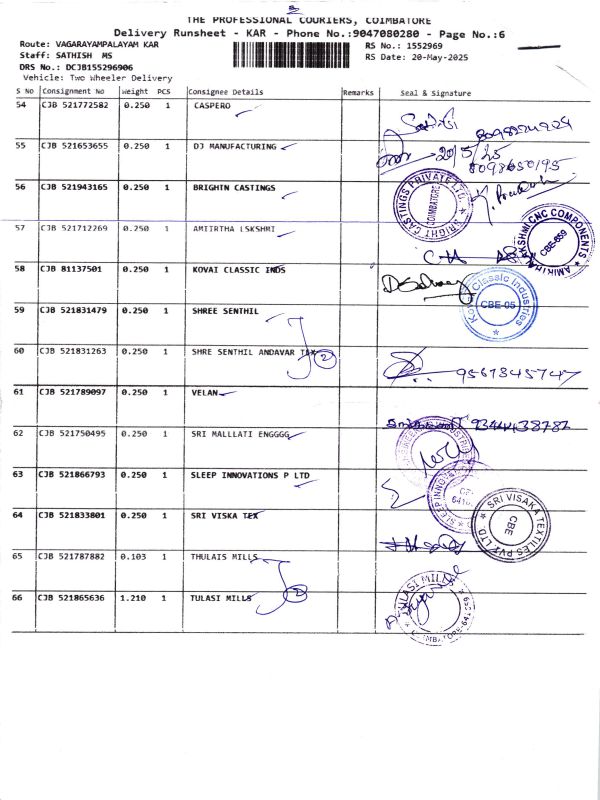 THE PROFESSIONAL COURIERS, COIMBATORE
Delivery Runsheet - KAR - Phone No.:9047080280 - Page No.:6
Route: VAGARAYAMPALAYAM KAR
RS No.: 1552969
Staff: SATHISH MS
RS Date: 20-May-2025
DRS No.: DCJB155296906
Vehicle: Two Wheeler Delivery
S No Consignment No Weight PCS Consignee Details Remarks Seal & Signature
54 CJB 521772582 0.250 1 CASPERO
8098224924
55 CJB 521653655 0.250 1 DJ MANUFACTURING 20/5/25
8098650195
56 CJB 521943165 0.250 1 BRIGHTN CASTINGS
BRIGHT CASTINGS PRIVATE LTD. COIMBATORE
57 CJB 521712269 0.250 1 AMIIRTHA LSKSHMI
LAKSHMI CNC COMPONENTS CBE-659
58 CJB 81137501 0.250 1 KOVAI CLASSIC INDS
Kovai Classic Industries CBE-05
59 CJB 521831479 0.250 1 SHREE SENTHIL
60 CJB 521831263 0.250 1 SHRE SENTHIL ANDAVAR TEX 2
9567845747
61 CJB 521789097 0.250 1 VELAN
62 CJB 521750495 0.250 1 SRI MALLLATI ENGGGG
63 CJB 521866793 0.250 1 SLEEP INNOVATIONS P LTD
SLEEP INNO
64 CJB 521833801 0.250 1 SRI VISKA TEX
SRI VISAKA TEXTILES PVT LTD CBE
65 CJB 521787882 0.103 1 THULAIS MILLS
66 CJB 521865636 1.210 1 TULASI MILLS 2
TULASI MILLS